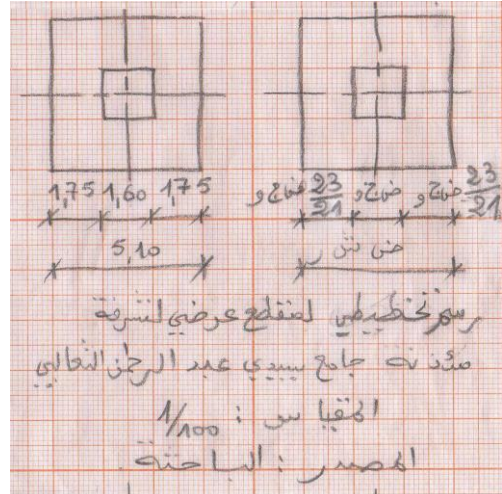 1,75 1,60 1,75
23/21 23/21
5,10
رسم تخطيطي لمقطع عرضي لشرفة
مئذنة جامع سيدي عبد الرحمن الثعالبي
المقياس : 1/100
المصدر : الباحثة